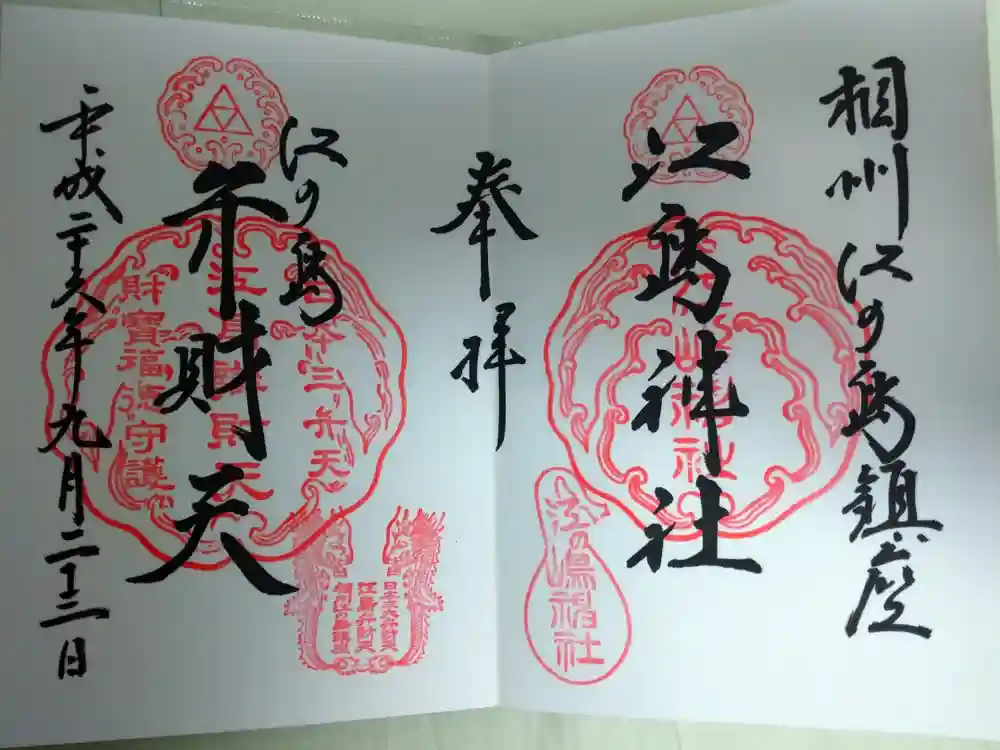 相州江の島鎮座
江島神社
奉拝
江の島
弁財天
平成二十六年九月二十三日
江の嶋福社
日本三大弁財天
江島弁財天
相州江の島鎮座
日本三弁天
財寶福徳守護